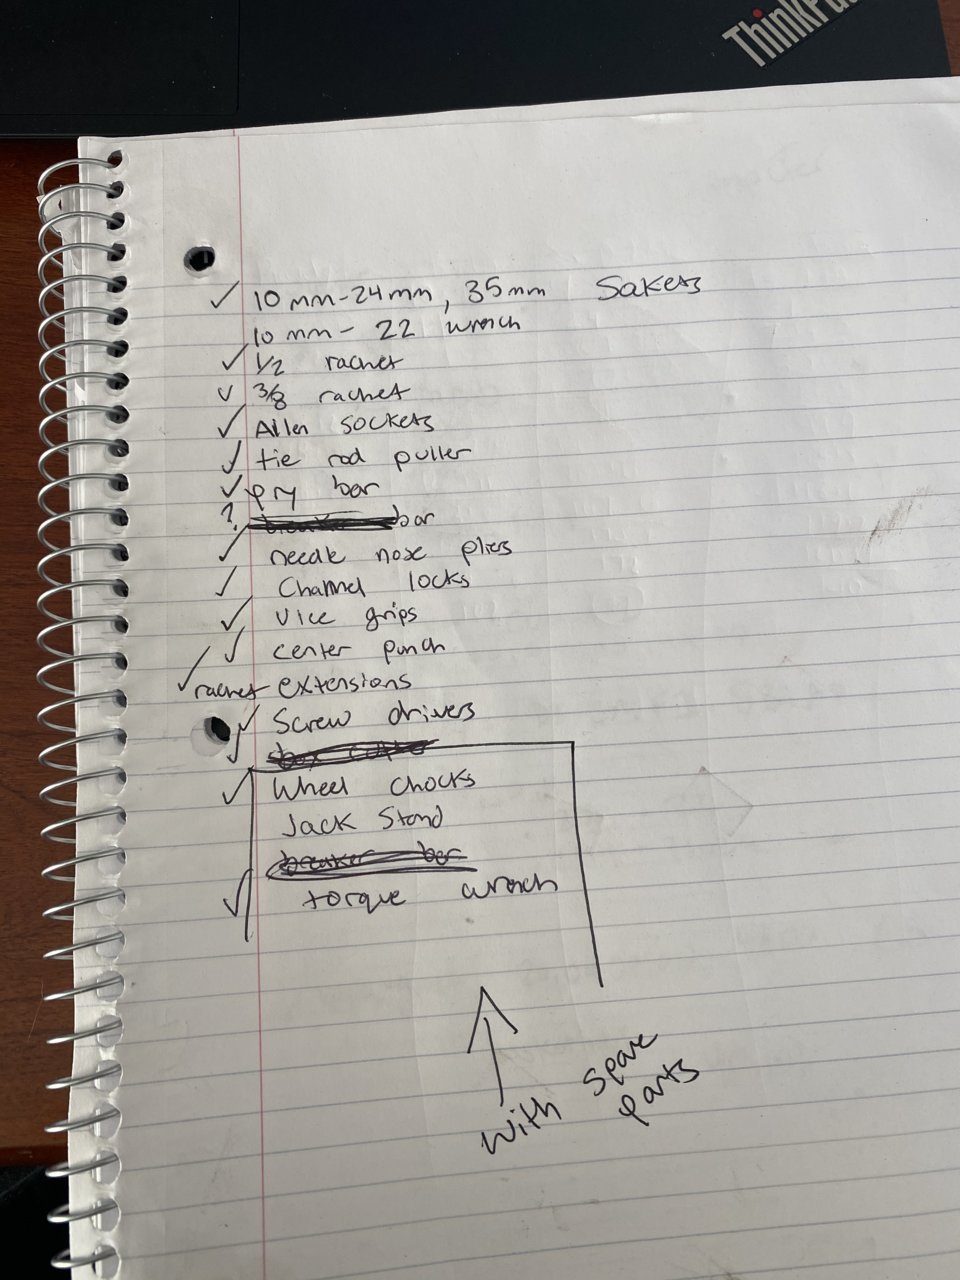 ThinkPa
✓ 10mm-24mm, 35mm Sakets
10 mm- 22 wrench
✓ 1/2 rachet
✓ 3/8 rachet
✓ Allen sockets
✓ tie rod puller
✓ pry bar
? breaker bar
✓ needle nose pliers
✓ Channel locks
✓ Vice grips
✓ center punch
✓ rachet extensions
✓ Screw drivers
✓ box cutter
✓ Wheel chocks
Jack Stand
breaker bar
✓ torque wrench
with spare
parts